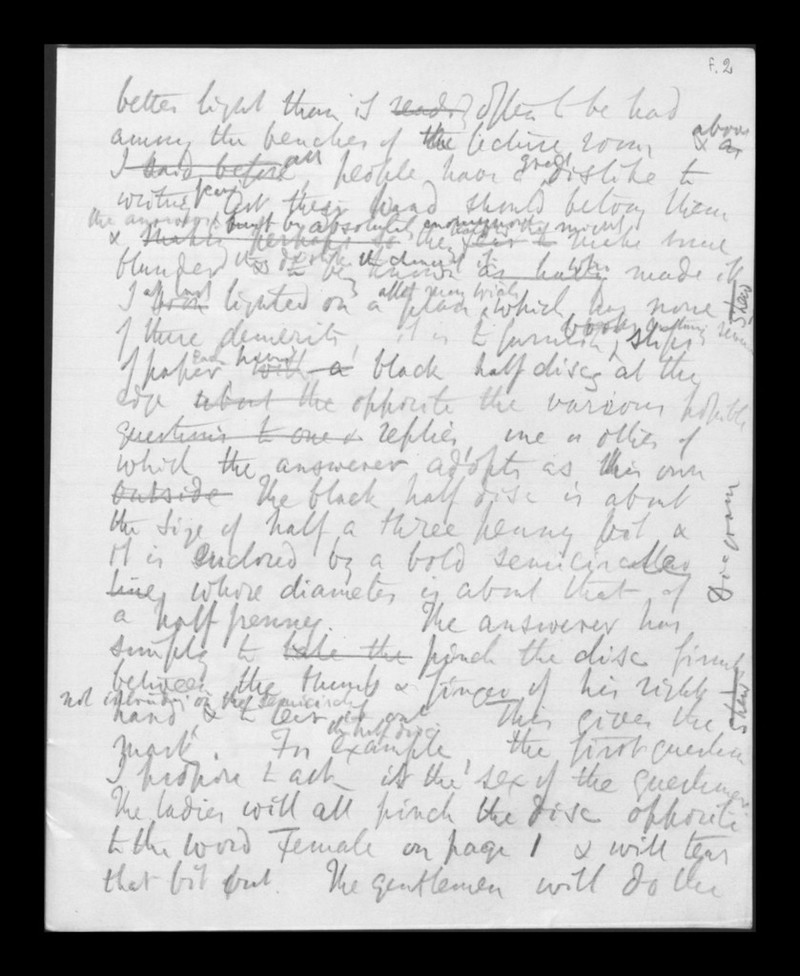 f. 2
better light than is ready often to be had
among the benches of the lecture room & as
above
I said before all people have a great dislike to
writing lest their hand should betray them
the answers must be absolutely anonymous
& the fear to make some
blunder & to be known as having made it
I at last lighted on a plan after many trials which has none
of these demerits, it is to furnish books slips
of paper each having with a black half discs at the
edge about the opposite the various possible
questions to one or replies one or other of
which the answerer adopts as his own
outside The black half disc is about
the size of half a three penny bit &
it is enclosed by a bold semicircular
line, whose diameter is about that of
a half penny. The answerer has
simply to take the pinch the disc firmly
between the thumb & finger of his right
not intruding on the semicircle
hand & to tear it out This gives the
the half disc
mark. For example, the first question
I propose to ask is the sex of the
The ladies will all pinch the disc opposite
to the word Female on page 1 & will tear
that bit out. The gentlemen will do the
Shew
Diagram
Shew